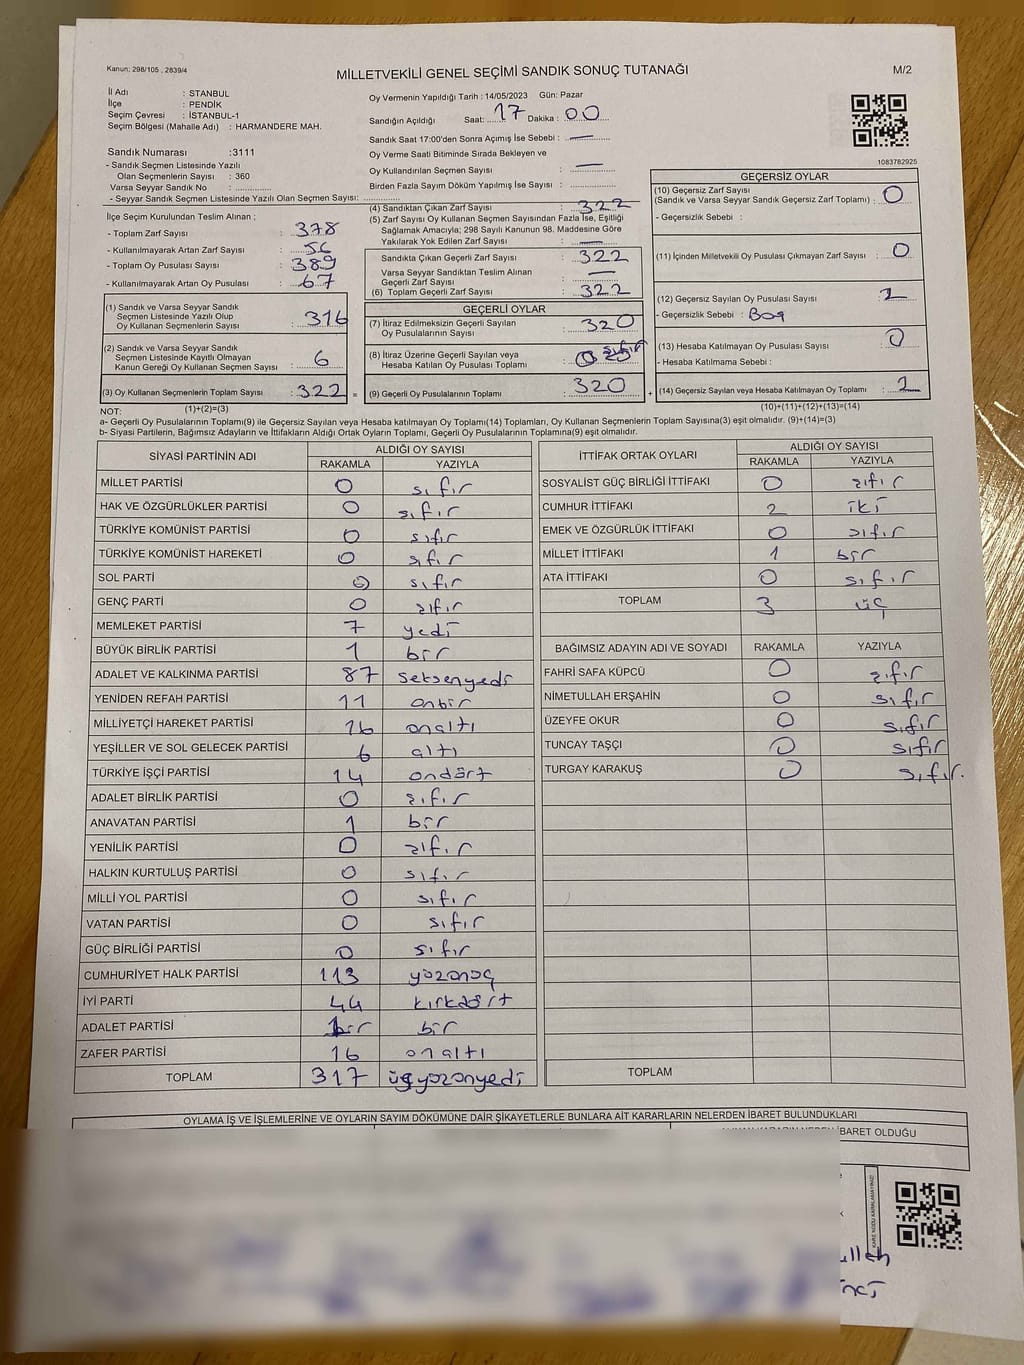 Kanun: 298/105 , 2839/4
MİLLETVEKİLİ GENEL SEÇİMİ SANDIK SONUÇ TUTANAĞI
M/2
İl Adı : STANBUL
İlçe : PENDİK
Seçim Çevresi : İSTANBUL-1
Seçim Bölgesi (Mahalle Adı) : HARMANDERE MAH.
Oy Vermenin Yapıldığı Tarih : 14/05/2023 Gün: Pazar
Sandığın Açıldığı Saat: 17 Dakika : 00
Sandık Saat 17:00'den Sonra Açımış İse Sebebi : —
Oy Verme Saati Bitiminde Sırada Bekleyen ve
Oy Kullandırılan Seçmen Sayısı : —
Birden Fazla Sayım Döküm Yapılmış İse Sayısı : ..............
1083782925
Sandık Numarası :3111
- Sandık Seçmen Listesinde Yazılı
Olan Seçmenlerin Sayısı : 360
Varsa Seyyar Sandık No : ..............
- Seyyar Sandık Seçmen Listesinde Yazılı Olan Seçmen Sayısı: ..............
İlçe Seçim Kurulundan Teslim Alınan ;
- Toplam Zarf Sayısı : 378
- Kullanılmayarak Artan Zarf Sayısı : 56
- Toplam Oy Pusulası Sayısı : 389
- Kullanılmayarak Artan Oy Pusulası : 67
(1) Sandık ve Varsa Seyyar Sandık
Seçmen Listesinde Yazılı Olup
Oy Kullanan Seçmenlerin Sayısı : 316
(2) Sandık ve Varsa Seyyar Sandık
Seçmen Listesinde Kayıtlı Olmayan
Kanun Gereği Oy Kullanan Seçmen Sayısı : 6
(3) Oy Kullanan Seçmenlerin Toplam Sayısı : 322 =
(1)+(2)=(3)
(4) Sandıktan Çıkan Zarf Sayısı : 322
(5) Zarf Sayısı Oy Kullanan Seçmen Sayısından Fazla İse, Eşitliği
Sağlamak Amacıyla; 298 Sayılı Kanunun 98. Maddesine Göre
Yakılarak Yok Edilen Zarf Sayısı : —
Sandıkta Çıkan Geçerli Zarf Sayısı : 322
Varsa Seyyar Sandıktan Teslim Alınan
Geçerli Zarf Sayısı : —
(6) Toplam Geçerli Zarf Sayısı : 322
GEÇERLİ OYLAR
(7) İtiraz Edilmeksizin Geçerli Sayılan
Oy Pusulalarının Sayısı : 320
(8) İtiraz Üzerine Geçerli Sayılan veya
Hesaba Katılan Oy Pusulası Toplamı : 0 sıfır
(9) Geçerli Oy Pusulalarının Toplamı : 320 +
GEÇERSİZ OYLAR
(10) Geçersiz Zarf Sayısı
(Sandık ve Varsa Seyyar Sandık Geçersiz Zarf Toplamı) : 0
- Geçersizlik Sebebi :
(11) İçinden Milletvekili Oy Pusulası Çıkmayan Zarf Sayısı : 0
(12) Geçersiz Sayılan Oy Pusulası Sayısı :
- Geçersizlik Sebebi : Boş
(13) Hesaba Katılmayan Oy Pusulası Sayısı : 0
- Hesaba Katılmama Sebebi :
(14) Geçersiz Sayılan veya Hesaba Katılmayan Oy Toplamı :
(10)+(11)+(12)+(13)=(14)
NOT:
a- Geçerli Oy Pusulalarının Toplamı(9) ile Geçersiz Sayılan veya Hesaba katılmayan Oy Toplamı(14) Toplamları, Oy Kullanan Seçmenlerin Toplam Sayısına(3) eşit olmalıdır. (9)+(14)=(3)
b- Siyasi Partilerin, Bağımsız Adayların ve İttifakların Aldığı Ortak Oyların Toplamı, Geçerli Oy Pusulalarının Toplamına(9) eşit olmalıdır.
SİYASİ PARTİNİN ADI
ALDIĞI OY SAYISI
RAKAMLA YAZIYLA
MİLLET PARTİSİ 0 sıfır
HAK VE ÖZGÜRLÜKLER PARTİSİ 0 sıfır
TÜRKİYE KOMÜNİST PARTİSİ 0 sıfır
TÜRKİYE KOMÜNİST HAREKETİ 0 sıfır
SOL PARTİ 0 sıfır
GENÇ PARTİ 0 sıfır
MEMLEKET PARTİSİ 7 yedi
BÜYÜK BİRLİK PARTİSİ 1 bir
ADALET VE KALKINMA PARTİSİ 87 seksenyedi
YENİDEN REFAH PARTİSİ 11 onbir
MİLLİYETÇİ HAREKET PARTİSİ 16 onaltı
YEŞİLLER VE SOL GELECEK PARTİSİ 6 altı
TÜRKİYE İŞÇİ PARTİSİ 14 ondört
ADALET BİRLİK PARTİSİ 0 sıfır
ANAVATAN PARTİSİ 1 bir
YENİLİK PARTİSİ 0 sıfır
HALKIN KURTULUŞ PARTİSİ 0 sıfır
MİLLİ YOL PARTİSİ 0 sıfır
VATAN PARTİSİ 0 sıfır
GÜÇ BİRLİĞİ PARTİSİ 0 sıfır
CUMHURİYET HALK PARTİSİ 113 yüzonüç
İYİ PARTİ 44 kırkdört
ADALET PARTİSİ 1bir bir
ZAFER PARTİSİ 16 onaltı
TOPLAM 317 üçyüzonyedi
İTTİFAK ORTAK OYLARI
ALDIĞI OY SAYISI
RAKAMLA YAZIYLA
SOSYALİST GÜÇ BİRLİĞİ İTTİFAKI 0 sıfır
CUMHUR İTTİFAKI 2 iki
EMEK VE ÖZGÜRLÜK İTTİFAKI 0 sıfır
MİLLET İTTİFAKI 1 bir
ATA İTTİFAKI 0 sıfır
TOPLAM 3 üç
BAĞIMSIZ ADAYIN ADI VE SOYADI RAKAMLA YAZIYLA
FAHRİ SAFA KÜPCÜ 0 sıfır
NİMETULLAH ERŞAHİN 0 sıfır
ÜZEYFE OKUR 0 sıfır
TUNCAY TAŞÇI 0 sıfır
TURGAY KARAKUŞ 0 sıfır.
TOPLAM
OYLAMA İŞ VE İŞLEMLERİNE VE OYLARIN SAYIM DÖKÜMÜNE DAİR ŞİKAYETLERLE BUNLARA AİT KARARLARIN NELERDEN İBARET BULUNDUKLARI
İBARET OLDUĞU